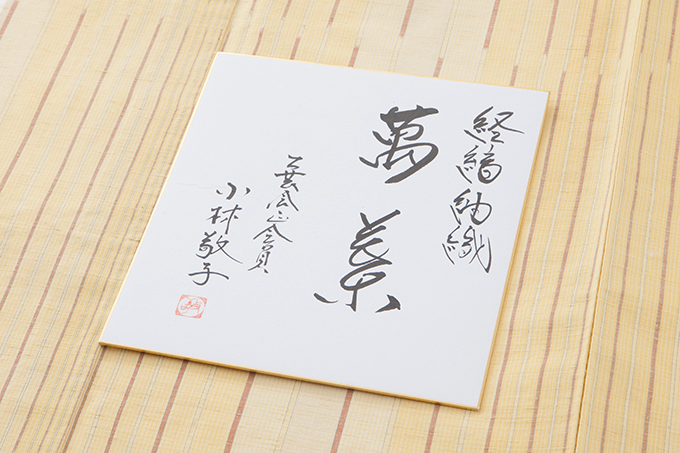 経縞紬織
萬葉
工芸会正会員
小林敬子